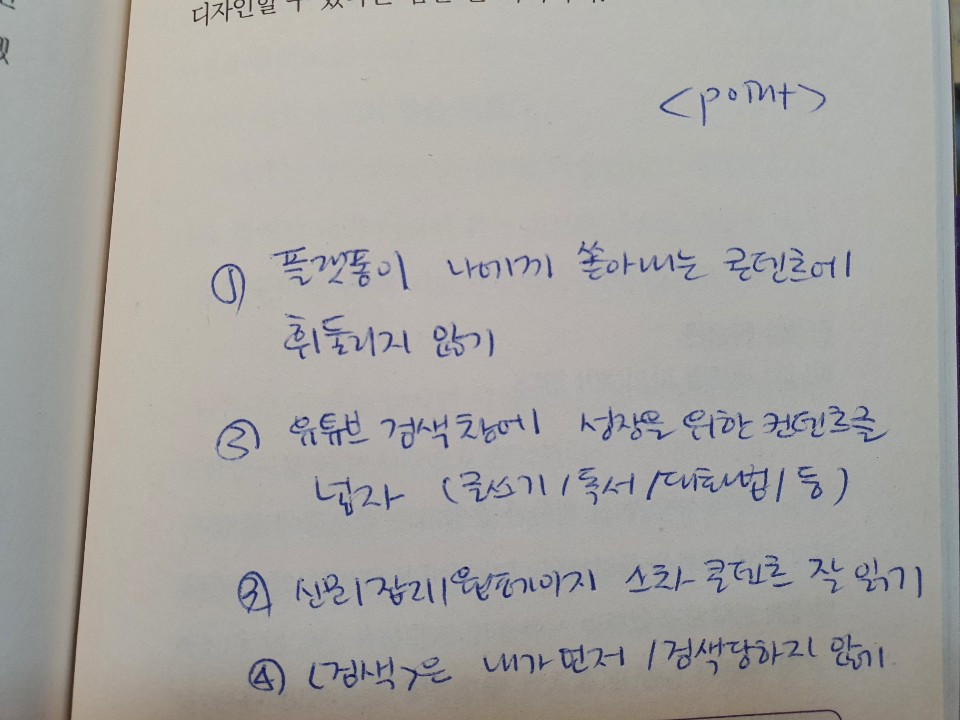 <point>
① 플랫폼이 나에게 쏟아내는 콘텐츠에
휘둘리지 않기
② 유튜브 검색창에 성장을 위한 컨텐츠를
넣자 (글쓰기/독서/대화법/등)
③ 신문/잡지/웹페이지 콘텐츠 잘 읽기
④ (검색)은 내가 먼저 / 검색당하지 않기